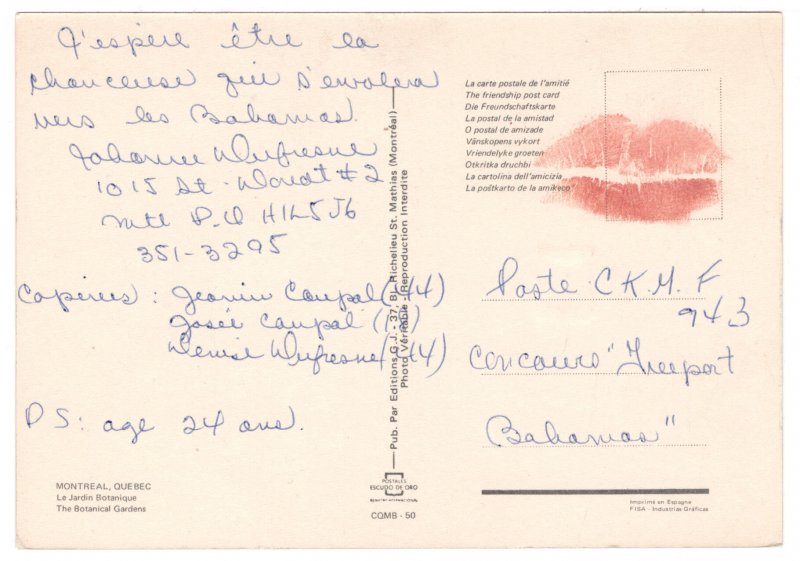 J'espère être la
chanceuse qui s'envolera
vers les Bahamas.
Johanne Dufresne
1015 St-Donat #2
Mtl P.Q H1L5J6
351-3295
Copines : Jeannine Coupal (44)
Josée Coupal
Denise Dufresne (44)
PS: age 24 ans.
MONTREAL, QUEBEC
Le Jardin Botanique
The Botanical Gardens
Pub. Par Editions G.J. - 37, B. Richelieu St. Mathias (Montréal)
Photo Véritable (Reproduction Interdite
POSTALES
ESCUDO DE ORO
REGISTRO INTERNACIONAL
CQMB - 50
La carte postale de l'amitié
The friendship post card
Die Freundschaftskarte
La postal de la amistad
O postal de amizade
Vänskopens vykort
Vriendelyke groeten
Otkritka druchbi
La cartolina dell'amicizia
La poŝtkarto de la amikeco
Poste C K.M.F
94,3
Concours "Freeport
Bahamas"
Imprimé en Espagne
FISA - Industrias Gráficas